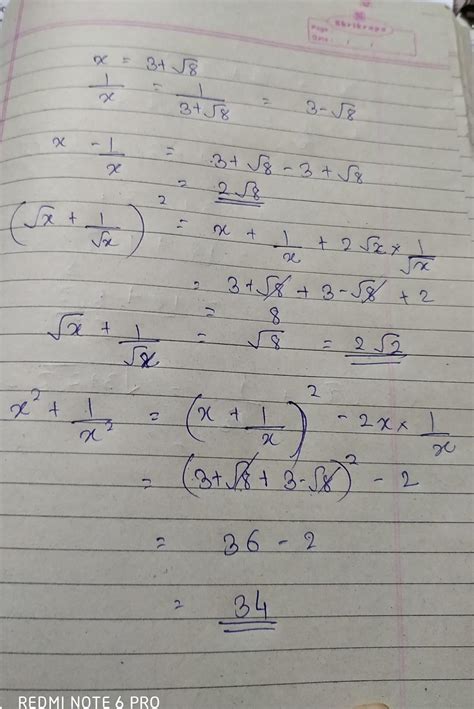 Page
Date / /
x = 3+√8
1/x = 1/(3+√8) = 3-√8
x - 1/x = 3+√8 - 3+√8
= 2√8
(√x + 1/√x)² = x + 1/x + 2√x × 1/√x
= 3+√8 + 3-√8 + 2
= 8
√x + 1/√x = √8 = 2√2
x² + 1/x² = (x + 1/x)² - 2x × 1/x
= (3+√8 + 3-√8)² - 2
= 36 - 2
= 34
REDMI NOTE 6 PRO